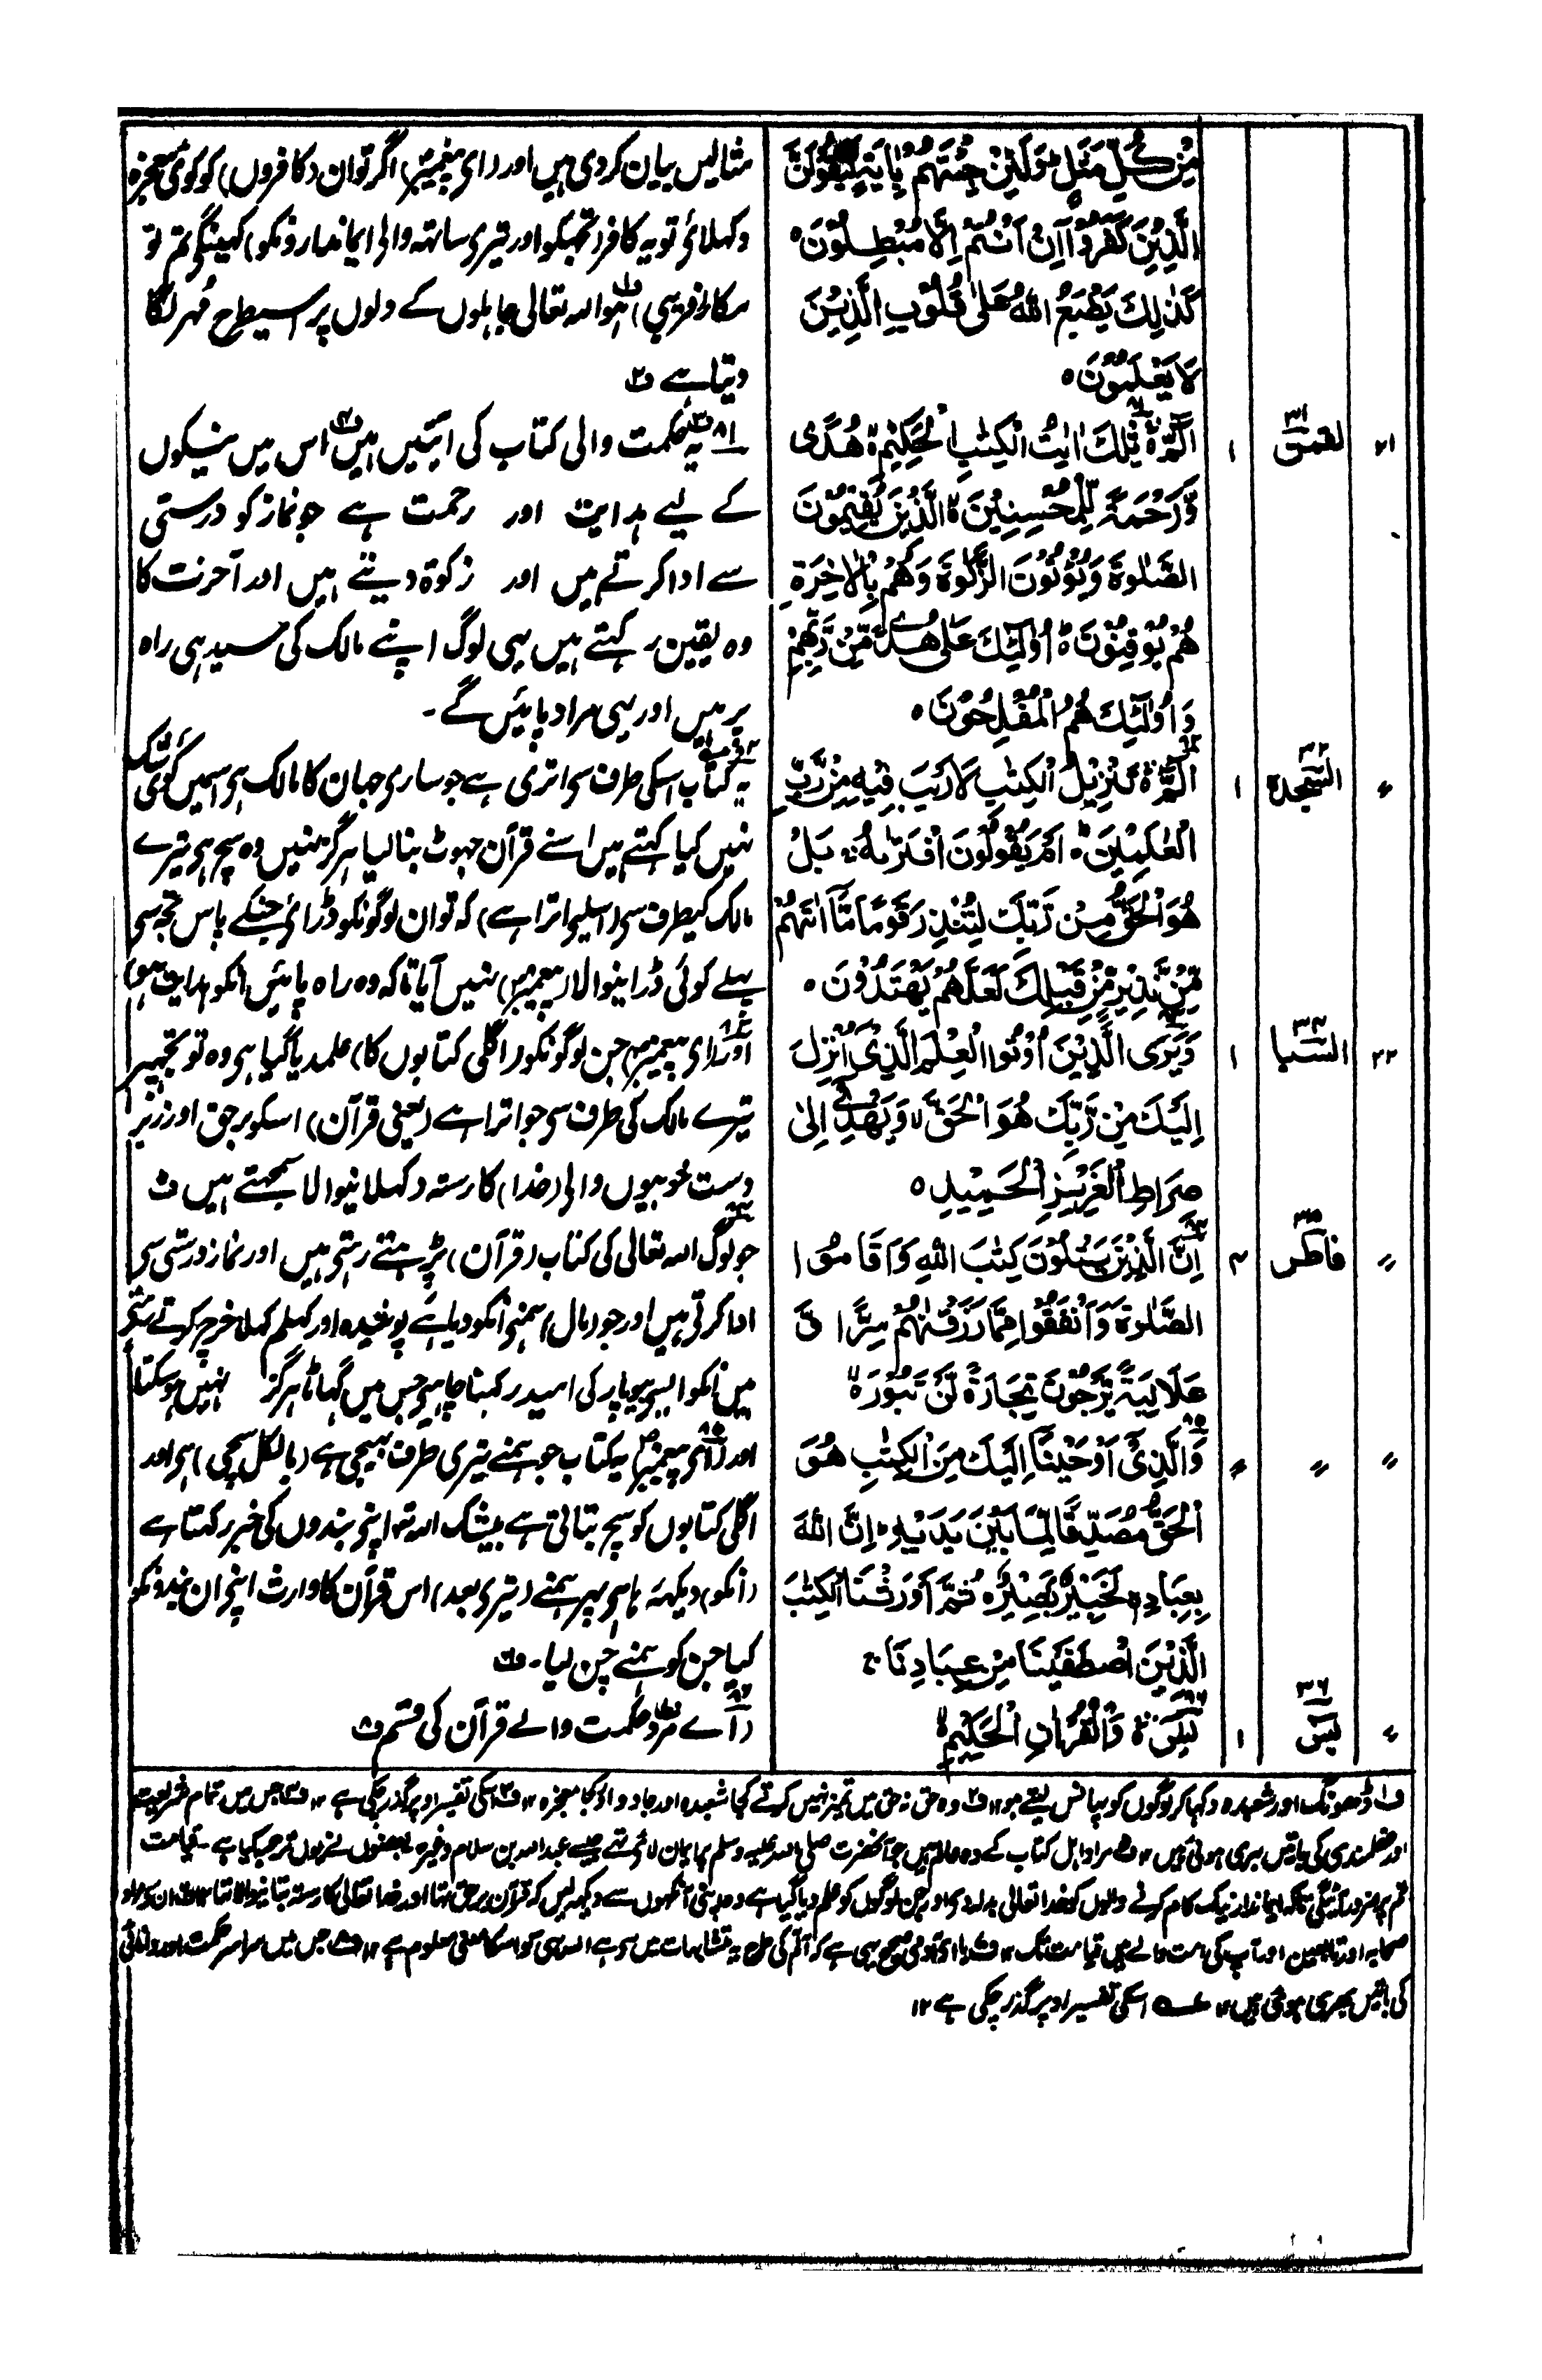 مِنْ كُلِّ مَثَلٍ ؕ وَلَئِنْ جِئْتَهُمْ بِاٰيَةٍ لَّيَقُوْلَنَّ
الَّذِيْنَ كَفَرُوْٓا اِنْ اَنْتُمْ اِلَّا مُبْطِلُوْنَ ۰
كَذٰلِكَ يَطْبَعُ اللّٰهُ عَلٰى قُلُوْبِ الَّذِيْنَ
لَا يَعْلَمُوْنَ ۰
مثالیں بیان کر دی ہیں اور (ای پیغمبرؐ) اگر تو ان (کافروں) کو کوئی معجزہ
دکہلائے تو یہ کافر (تجہکو اور تیری ساتھہ والی ایماندارونکو) کہینگی تم تو
مکار (فریبی) ہو اللہ تعالی جاہلوں کے دلوں پر اسیطرح مُہر لگا
دیتا ہے ف۲
۲۱ لقمٰن ۳۱ ۱
۸۱ الٓمّٓ ۚ تِلْكَ اٰيٰتُ الْكِتٰبِ الْحَكِيْمِ ۙ هُدًى
وَّرَحْمَةً لِّلْمُحْسِنِيْنَ ۙ الَّذِيْنَ يُقِيْمُوْنَ
الصَّلٰوةَ وَيُؤْتُوْنَ الزَّكٰوةَ وَهُمْ بِالْاٰخِرَةِ
هُمْ يُوْقِنُوْنَ ؕ اُولٰٓئِكَ عَلٰى هُدًى مِّنْ رَّبِّهِمْ
وَاُولٰٓئِكَ هُمُ الْمُفْلِحُوْنَ ۰
۸۱ یہ ف۳ حکمت والی کتاب کی آیتیں ہیں ف۴ اس میں نیکوں
کے لیے ہدایت اور رحمت ہے جو نماز کو درستی
سے ادا کرتے ہیں اور زکوۃ دیتے ہیں اور آخرت کا
وہ یقین رکہتے ہیں یہی لوگ اپنے مالک کی سیدہی راہ
پر ہیں اور یہی مراد پائیں گے۔
〃 السّجدہ ۳۲ ۱
الٓمّٓ ۚ تَنْزِيْلُ الْكِتٰبِ لَا رَيْبَ فِيْهِ مِنْ رَّبِّ
الْعٰلَمِيْنَ ؕ اَمْ يَقُوْلُوْنَ افْتَرٰىهُ ۚ بَلْ
هُوَ الْحَقُّ مِنْ رَّبِّكَ لِتُنْذِرَ قَوْمًا مَّآ اَتٰىهُمْ
مِّنْ نَّذِيْرٍ مِّنْ قَبْلِكَ لَعَلَّهُمْ يَهْتَدُوْنَ ۰
یہ کتاب اسکی طرف سی اتری ہے جو ساری جہان کا مالک ہی اسمیں کوئی شک
نہیں کیا کہتے ہیں اسنے قرآن جہوٹ بنا لیا ہرگز نہیں وہ سچ ہی تیرے
مالک کیطرف سی (اسلیے اترا ہے) کہ تو ان لوگونکو ڈرائے جنکے پاس تجہسی
پہلے کوئی ڈرانیوالا (پیغمبر) نہیں آیا تاکہ وہ راہ پائیں (انکو ہدایت ہو)
۲۲ السّبا ۳۴ ۱
وَيَرَى الَّذِيْنَ اُوْتُوا الْعِلْمَ الَّذِيْٓ اُنْزِلَ
اِلَيْكَ مِنْ رَّبِّكَ هُوَ الْحَقَّ ۙ وَيَهْدِيْٓ اِلٰى
صِرَاطِ الْعَزِيْزِ الْحَمِيْدِ ۰
اور (ای پیغمبرؐ) جن لوگونکو (اگلی کتابوں کا) علم دیا گیا ہی وہ تو تجہپر
تیرے مالک کی طرف سی جو اترا ہے (یعنی قرآن) اسکو برحق اور زبر
دست خوبیوں والی (خدا) کا رستہ دکہلانیوالا سمجہتے ہیں ف۵
〃 فاطر ۳۵ ۴
اِنَّ الَّذِيْنَ يَتْلُوْنَ كِتٰبَ اللّٰهِ وَاَقَامُوا
الصَّلٰوةَ وَاَنْفَقُوْا مِمَّا رَزَقْنٰهُمْ سِرًّا وَّ
عَلَانِيَةً يَّرْجُوْنَ تِجَارَةً لَّنْ تَبُوْرَ ۙ
جو لوگ اللہ تعالی کی کتاب (قرآن) پڑہتے رہتی ہیں اور نماز درستی سی
ادا کرتی ہیں اور جو (مال) ہمنی انکو دیا ہے پوشیدہ اور کہلم کہلا خرچ کرتے رہتے
ہیں انکو ایسی بیوپار کی امید رکہنا چاہیے جس میں گہاٹا ہرگز نہیں ہو سکتا
〃 〃 〃
۸۵ وَالَّذِيْٓ اَوْحَيْنَآ اِلَيْكَ مِنَ الْكِتٰبِ هُوَ
الْحَقُّ مُصَدِّقًا لِّمَا بَيْنَ يَدَيْهِ ؕ اِنَّ اللّٰهَ
بِعِبَادِهٖ لَخَبِيْرٌۢ بَصِيْرٌ ۰ ثُمَّ اَوْرَثْنَا الْكِتٰبَ
الَّذِيْنَ اصْطَفَيْنَا مِنْ عِبَادِنَا ۚ
۸۵ اور (ای پیغمبرؐ) یہ کتاب جو ہمنے تیری طرف بہیجی ہے (بالکل سچی) ہی اور
اگلی کتابوں کو سچ بتاتی ہے بیشک اللہ تہ اپنی بندوں کی خبر رکہتا ہے
(انکو) دیکہہ رہا ہی پہر ہمنے (تیری بعد) اس قرآن کا وارث اپنی ان بندونکو
کیا جن کو ہمنے چن لیا۔ ف۶
〃 یٰسٓ ۳۶ ۱
۸۶ يٰسٓ ۚ وَالْقُرْاٰنِ الْحَكِيْمِ ۙ
۸۶ (اے مرد) ف۷ حکمت والے قرآن کی قسم ف۸
ف۱ ڈھونگ اور شعبدہ دکہا کر لوگوں کو پہانس لیتے ہو ۱۲ ف۲ وہ حق نہ حق میں تمیز نہیں کرتے کجا شعبدہ اور جادو اور کجا معجزہ ۱۲ ف۳ اسکی تفسیر اوپر گذر چکی ہے ۱۲ ف۴ جس میں تمام شریعت
اور عقلمندی کی باتیں بہری ہوئی ہیں ۱۲ ف۵ مراد اہل کتاب کے وہ عالم ہیں جو آنحضرت صلی اللہ علیہ وسلم پر ایمان لائے تہے جیسے عبداللہ بن سلام وغیرہ بعضوں نے یوں ترجمہ کیا ہے ۔ قیامت
تم پر ضرور آئیگی تاکہ ایماندار نیک کام کرنے والوں کو خدا تعالی بدلہ دی اور جن لوگوں کو علم دیا گیا ہے وہ اپنی آنکہوں سے دیکہہ لیں کہ قرآن برحق تہا اور خدا تعالی کا رستہ بتانیوالا تہا ۱۲ ف۶ ان سی مراد
صحابہ اور تابعین اور آپ کی امت والے ہیں قیامت تک ۱۲ ف۷ یا ای آدمی صحیح یہی ہے کہ الم کی طرح یہ متشابہات میں سی ہے اللہ ہی کو اسکا معنی معلوم ہے ۱۲ ف۸ جس میں سراسر حکمت اور دانائی
کی باتیں بہری ہوئی ہیں ۱۲ عــہ اسکی تفسیر اوپر گذر چکی ہے ۱۲